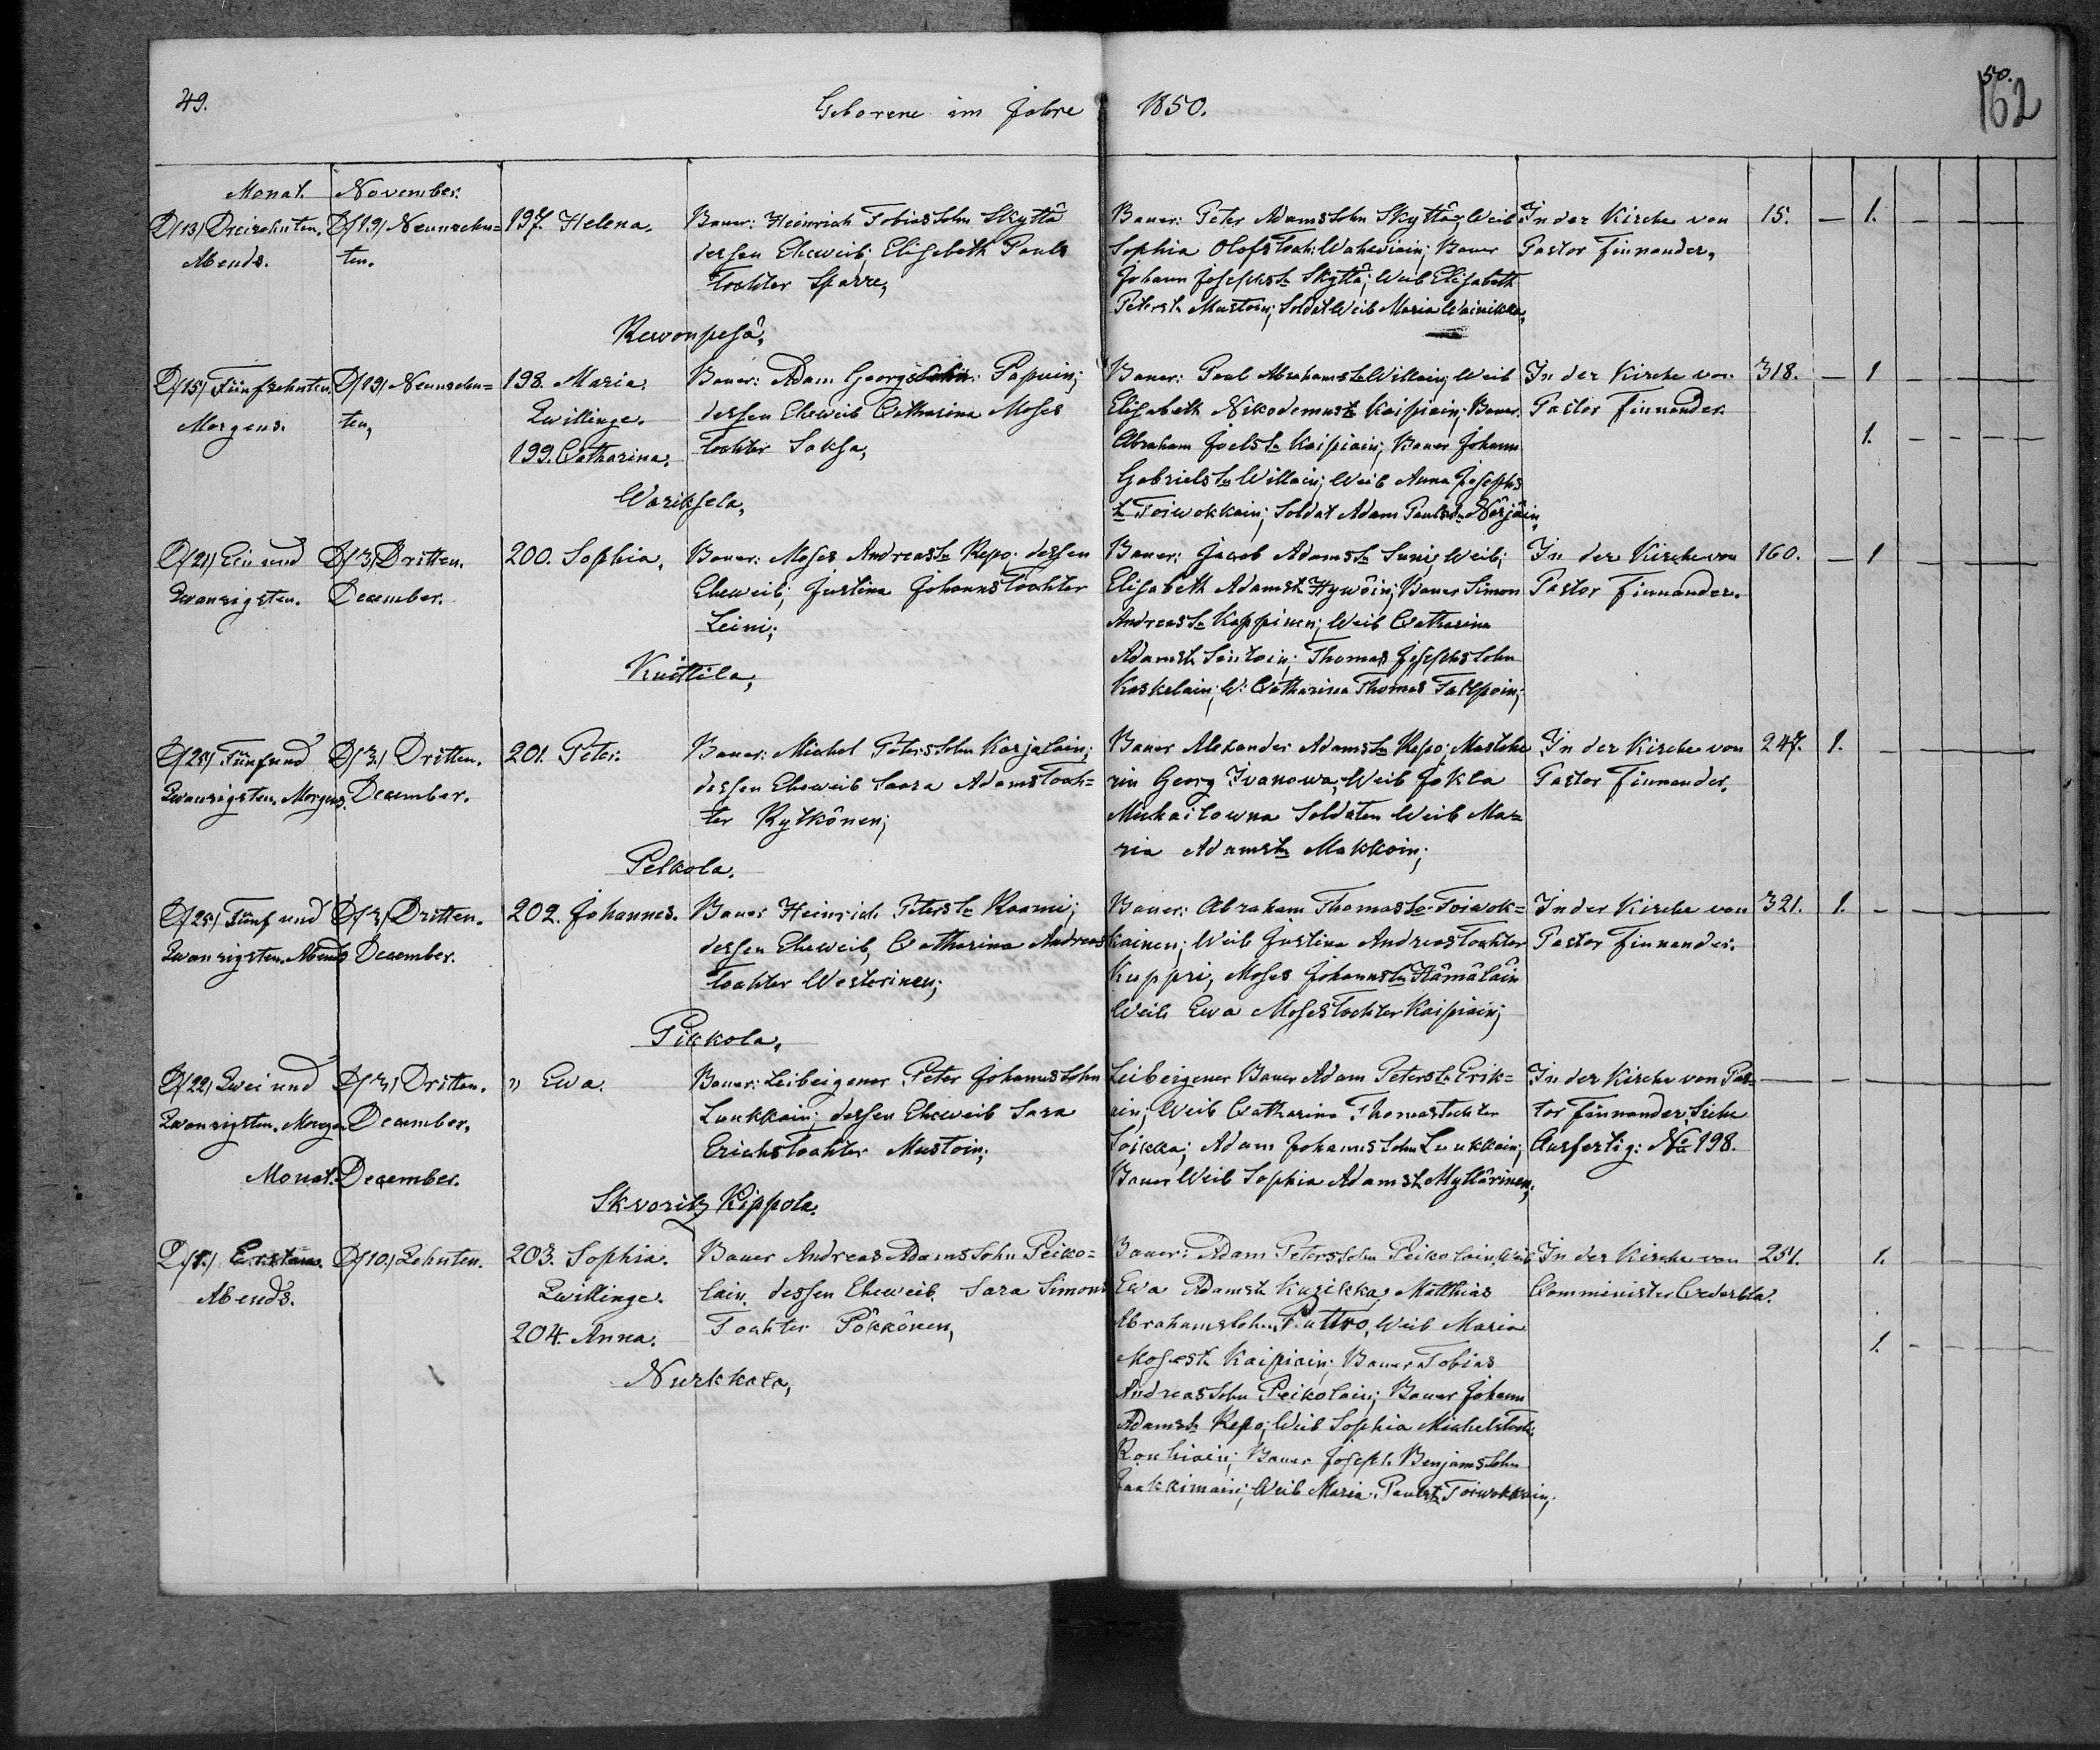 49.
Geborene im Jahre 1850.
50.
162
Monat. November.
D/13/ Dreizehnten. D/19/ Neunzehn= 197. Helena. Bauer: Heinrich Tobiassohn Skyttä
Abends. ten. dessen Eheweib; Elisabeth Pauls
Tochter Sparre,
Bauer: Peter Adamssohn Skyttä; Weib In der Kirche von 15. — 1. — — — —
Sophia Olofs Toch: ; Bauer Pastor Finnander.
Johann Josephs Sn Skyttä; Weib Elisabeth
Peters T. Mustoin; Soldat Weib Maria Wainikka,
Rewonpesä,
D/15/ Fünfzehnten D/19/ Neunzehn= 198. Maria. Bauer: Adam Georgssohn Papuin;
Morgens. ten, Zwillinge. dessen Eheweib Catharina Moses
199. Catharina. Tochter Saksa,
Bauer: Paul Abrahams Sn Willain; Weib In der Kirche von 318. — 1 — — — —
Elisabeth Nikodemus T. Kaipiain; Bauer Pastor Finnander.
Abraham Joels Sn Kaipiain; Bauer Johann 1. — — — —
Gabriels Sn Willain; Weib Anna Josephs
T. Toiwokkain; Soldat Adam Pauls Sn
Wariksela,
D/21/ Ein und D/3/ Dritten. 200. Sophia. Bauer: Moses Andreas Sn Repo; dessen
Zwanzigsten. December. Eheweib; Justina Johanns Tochter
Leini;
Bauer: Jacob Adams Sn Suni; Weib; In der Kirche von 160. — 1 — — — —
Elisabeth Adams T. Hywöin; Bauer Simon Pastor Finnander.
Andreas Sn Kappinen; Weib Catharina
Adams T. ; Thomas Josephssohn
Kaskelain; W: Catharina Thomas
Kuittila,
D/25/ Fünfund D/3/ Dritten. 201. Peter. Bauer: Michel Peterssohn Karjalain;
Zwanzigsten, Morgens. December. dessen Eheweib Saara Adams Toch=
ter Rytkönen;
Bauer Alexander Adams Sn Repo; In der Kirche von 247. 1. — — — — —
rin Georg Ivanowa; Weib Jokla Pastor Finnander.
Michailowna Soldaten Weib Ma=
ria Adams T. Makkoin;
Pelkola.
D/25/ Fünf und D/3/ Dritten. 202. Johannes. Bauer Heinrich Peters Sn Raami;
Zwanzigsten. Abends December. dessen Eheweib, Catharina Andreas
Tochter Westerinen;
Bauer: Abraham Thomas Sn Toiwok= In der Kirche von 321. 1. — — — — —
kainen; Weib Justina Andreas Tochter Pastor Finnander.
Kuppri, Moses Johanns Sn Hämäläin
Weib Ewa Moses Tochter Kaipiain;
Pikkola,
D/22/ Zwei und D/3/ Dritten. " Ewa. Bauer: Leibeigener Peter Johannssohn
Zwanzigsten. Morgen December. Lunkkain; dessen Eheweib Sara
Erichs Tochter Mustoin;
Leibeigener Bauer Adam Peters Sn Erik= In der Kirche von Pas= — — — — — — —
ain; Weib Catharina Thomas Tochter tor Finnander. Siehe
Soikka; Adam Johannssohn Lunkkain; Ausfertig: No 198.
Bauer Weib Sophia Adams T. Myllärinen;
Monat. December.
Skvoritz Kippola.
D/1./ Ersten. D/10./ Zehnten. 203. Sophia. Bauer Andreas Adamssohn Peiko=
Abends. Zwillinge. lain, dessen Eheweib. Sara Simons
204. Anna. Tochter Pökkönen,
Bauer: Adam Peterssohn Peikolain, Weib In der Kirche von 251. 1. — — — —
Ewa Adams T. Kuzikka, Matthias Comminister Cederbla.
Abrahamssohn Puttro, Weib Maria
Moses T. Kaipiain; Bauer Tobias 1. — — — —
Andreassohn Peikolain; Bauer Johann
Adams Sn Repo; Weib Sophia Michels Toch:
Rouhiain; Bauer Joseph Benjamssohn
Jaakkimain; Weib Maria Pauls T. Toiwokkain,
Nurkkala,